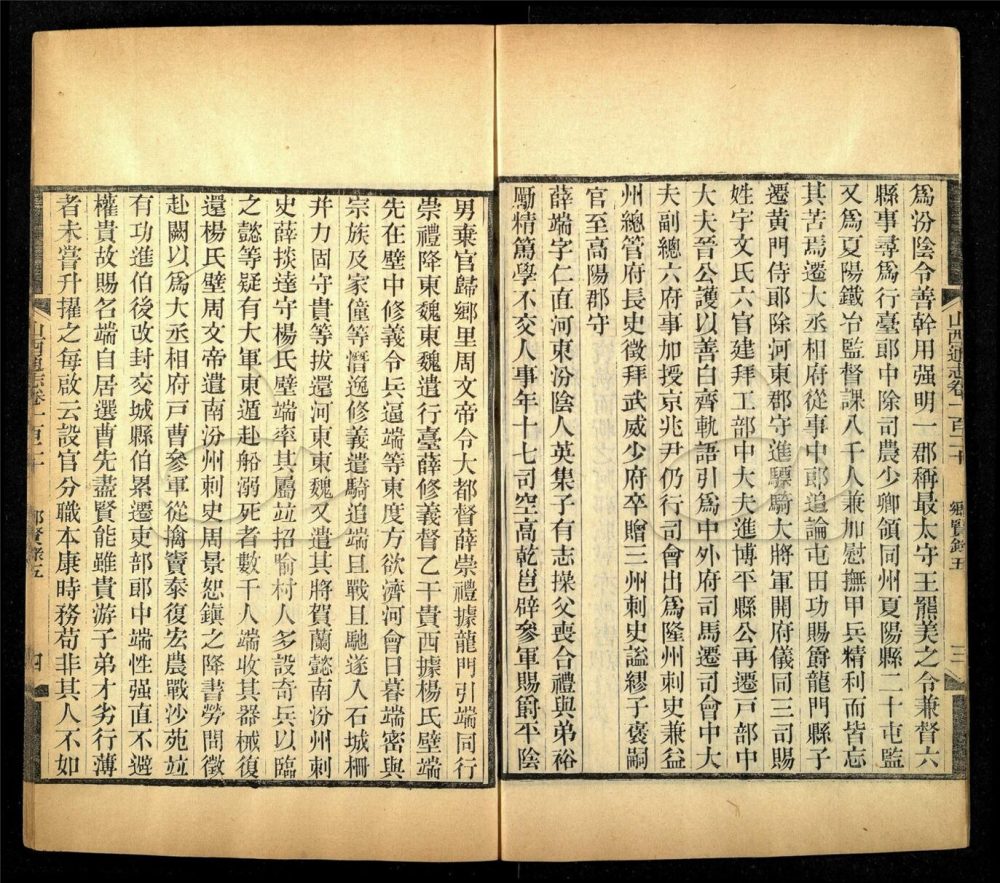 山西通志卷一百二十 鄉賢錄五 三
爲汾陰令善幹用强明一郡稱最太守王羆美之令兼督六
縣事尋爲行臺郎中除司農少卿領同州夏陽縣二十屯監
又爲夏陽鐵冶監督課八千人兼加慰撫甲兵精利而皆忘
其苦焉遷大丞相府從事中郎追論屯田功賜爵龍門縣子
遷黃門侍郎除河東郡守進驃騎大將軍開府儀同三司賜
姓宇文氏六官建拜工部中大夫進博平縣公再遷戸部中
大夫晉公護以善白齊軌語引爲中外府司馬遷司會中大
夫副總六府事加授京兆尹仍行司會出爲隆州刺史兼益
州總管府長史徵拜武威少府卒贈三州刺史謚繆子裒嗣
官至高陽郡守
薛端字仁直河東汾陰人英集子有志操父喪合禮與弟裕
勵精篤學不交人事年十七司空高乾邕辟參軍賜爵平陰
男棄官歸鄉里周文帝令大都督薛崇禮據龍門引端同行
崇禮降東魏東魏遣行臺薛修義督乙干貴西據楊氏壁端
先在壁中修義令兵逼端等東度方欲濟河會日暮端密與
宗族及家僮等潛逸修義遣騎追端且戰且馳遂入石城柵
并力固守貴等拔還河東東魏又遣其將賀蘭懿南汾州刺
史薛掞達守楊氏壁端率其屬竝招喻村人多設奇兵以臨
之懿等疑有大軍東遁赴船溺死者數千人端收其器械復
還楊氏壁周文帝遣南汾州刺史周景恕鎭之降書勞問徵
赴闕以爲大丞相府戸曹參軍從擒竇泰復宏農戰沙苑竝
有功進伯後改封交城縣伯累遷吏部郎中端性强直不避
權貴故賜名端自居選曹先盡賢能雖貴游子弟才劣行薄
者未嘗升擢之每啟云設官分職本康時務苟非其人不如
山西通志卷一百二十 鄉賢錄五 四